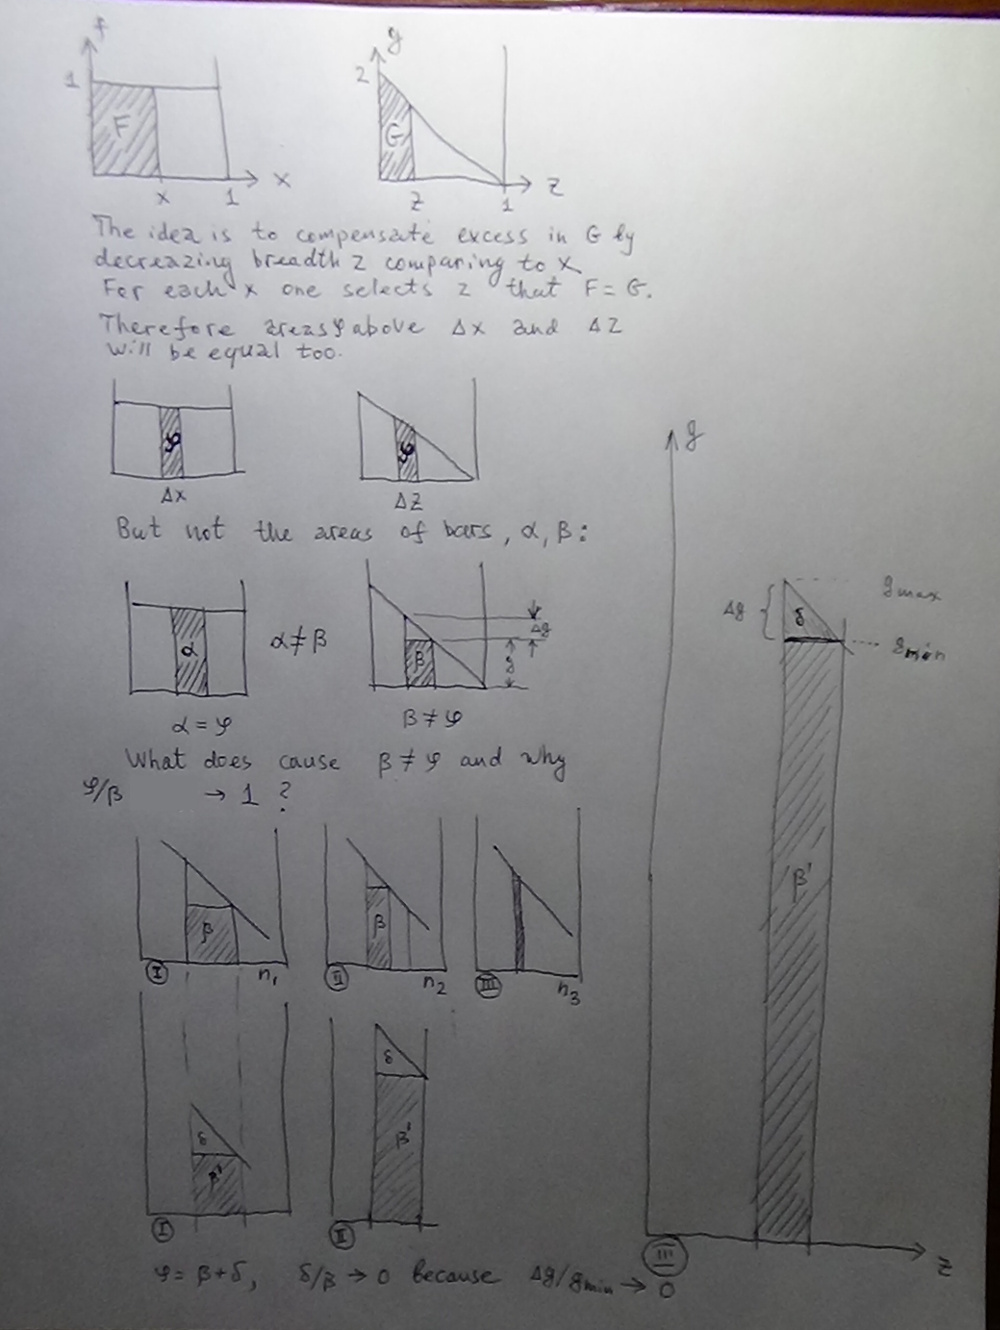 f
g
1
2
F
G
x
x
1
z
z
1
The idea is to compensate excess in G by
decreazing breadth z comparing to x.
For each x one selects z that F = G.
Therefore areas φ above Δx and Δz
will be equal too.
φ
φ
Δx
Δz
But not the areas of bars, α, β:
α
α ≠ β
β
Δg
g
α = φ
β ≠ φ
What does cause β ≠ φ and why
φ/β → 1 ?
β
β
I
n1
II
n2
III
n3
δ
β'
δ
β'
I
II
g
Δg
δ
gmax
gmin
β'
III
z
φ = β + δ, δ/β → 0 because Δg/gmin → 0